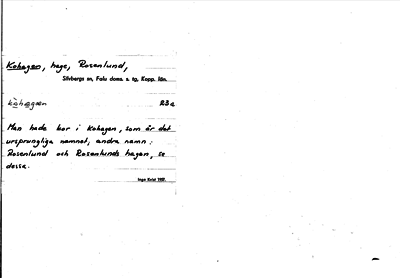 Kohagen, hage, Rosenlund,
Silvbergs sn, Falu doms. s. tg, Kopp. län.
kòhagæn 23a
Man hade kor i Kohagen, som är det
ursprungliga namnet, andra namn:
Rosenlund och Rosenlunds hagen, se
dessa.
Inga Kvist 1937.